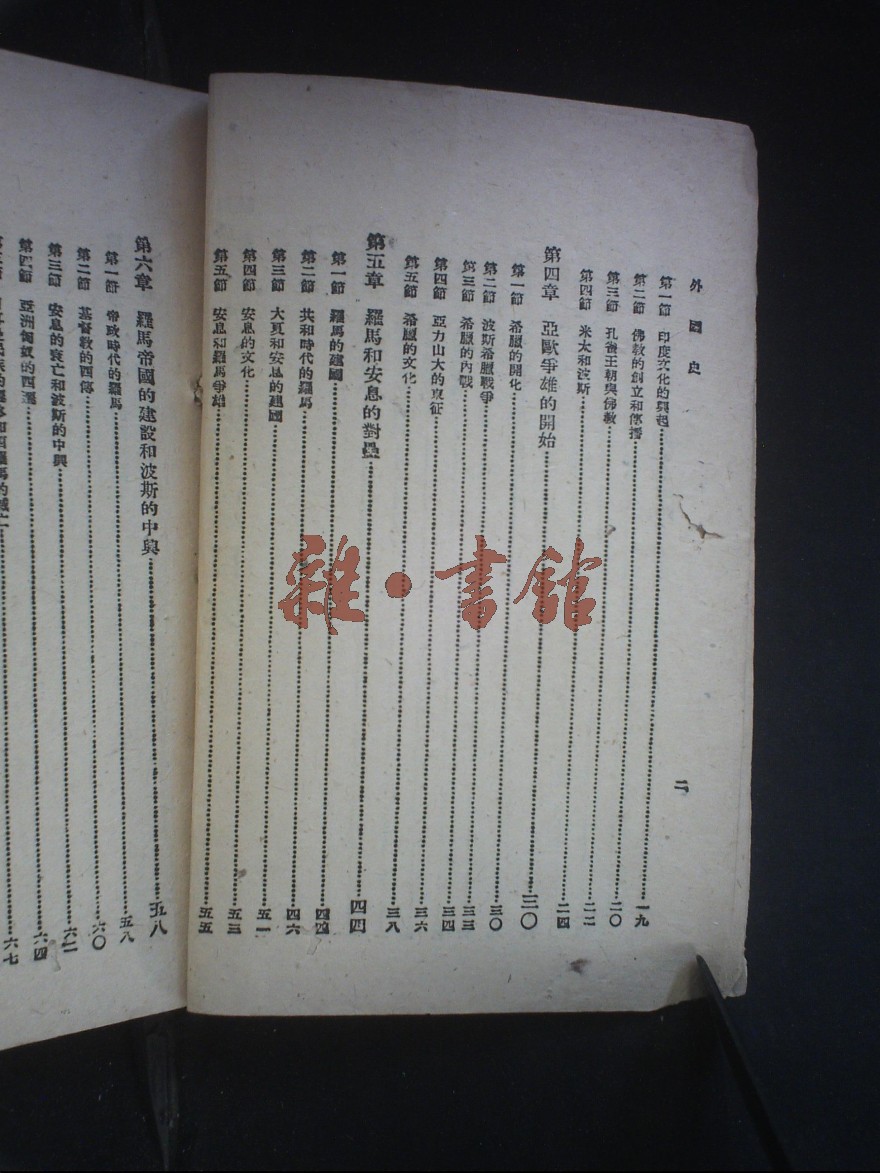 外國史 二
第一節 印度文化的興起……一九
第二節 佛教的創立和傳播……二〇
第三節 孔雀王朝與佛教……二二
第四節 米太和波斯……二四
第四章 亞歐爭雄的開始……三〇
第一節 希臘的開化……三〇
第二節 波斯希臘戰爭……三三
第三節 希臘的內戰……三四
第四節 亞力山大的東征……三六
第五節 希臘的文化……三八
第五章 羅馬和安息的對壘……四四
第一節 羅馬的建國……四四
第二節 共和時代的羅馬……四六
第三節 大夏和安息的建國……五一
第四節 安息的文化……五三
第五節 安息和羅馬爭雄……五五
第六章 羅馬帝國的建設和波斯的中興……五八
第一節 帝政時代的羅馬……五八
第二節 基督教的西傳……六〇
第三節 安息的衰亡和波斯的中興……六二
第四節 亞洲匈奴的西遷……六四
西羅馬的滅亡……六七
雜·書館